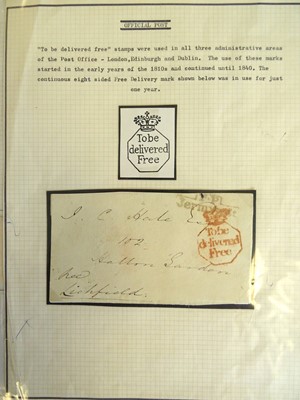 OFFICIAL POST
"To be delivered free" stamps were used in all three administrative areas
of the Post Office - London,Edinburgh and Dublin. The use of these marks
started in the early years of the 1810s and continued until 1840. The
continuous eight sided Free Delivery mark shown below was in use for just
one year.
To be
delivered
Free
J. C. Hale Esq
102
Hatton Garden
Lichfield.
To be
delivered
Free